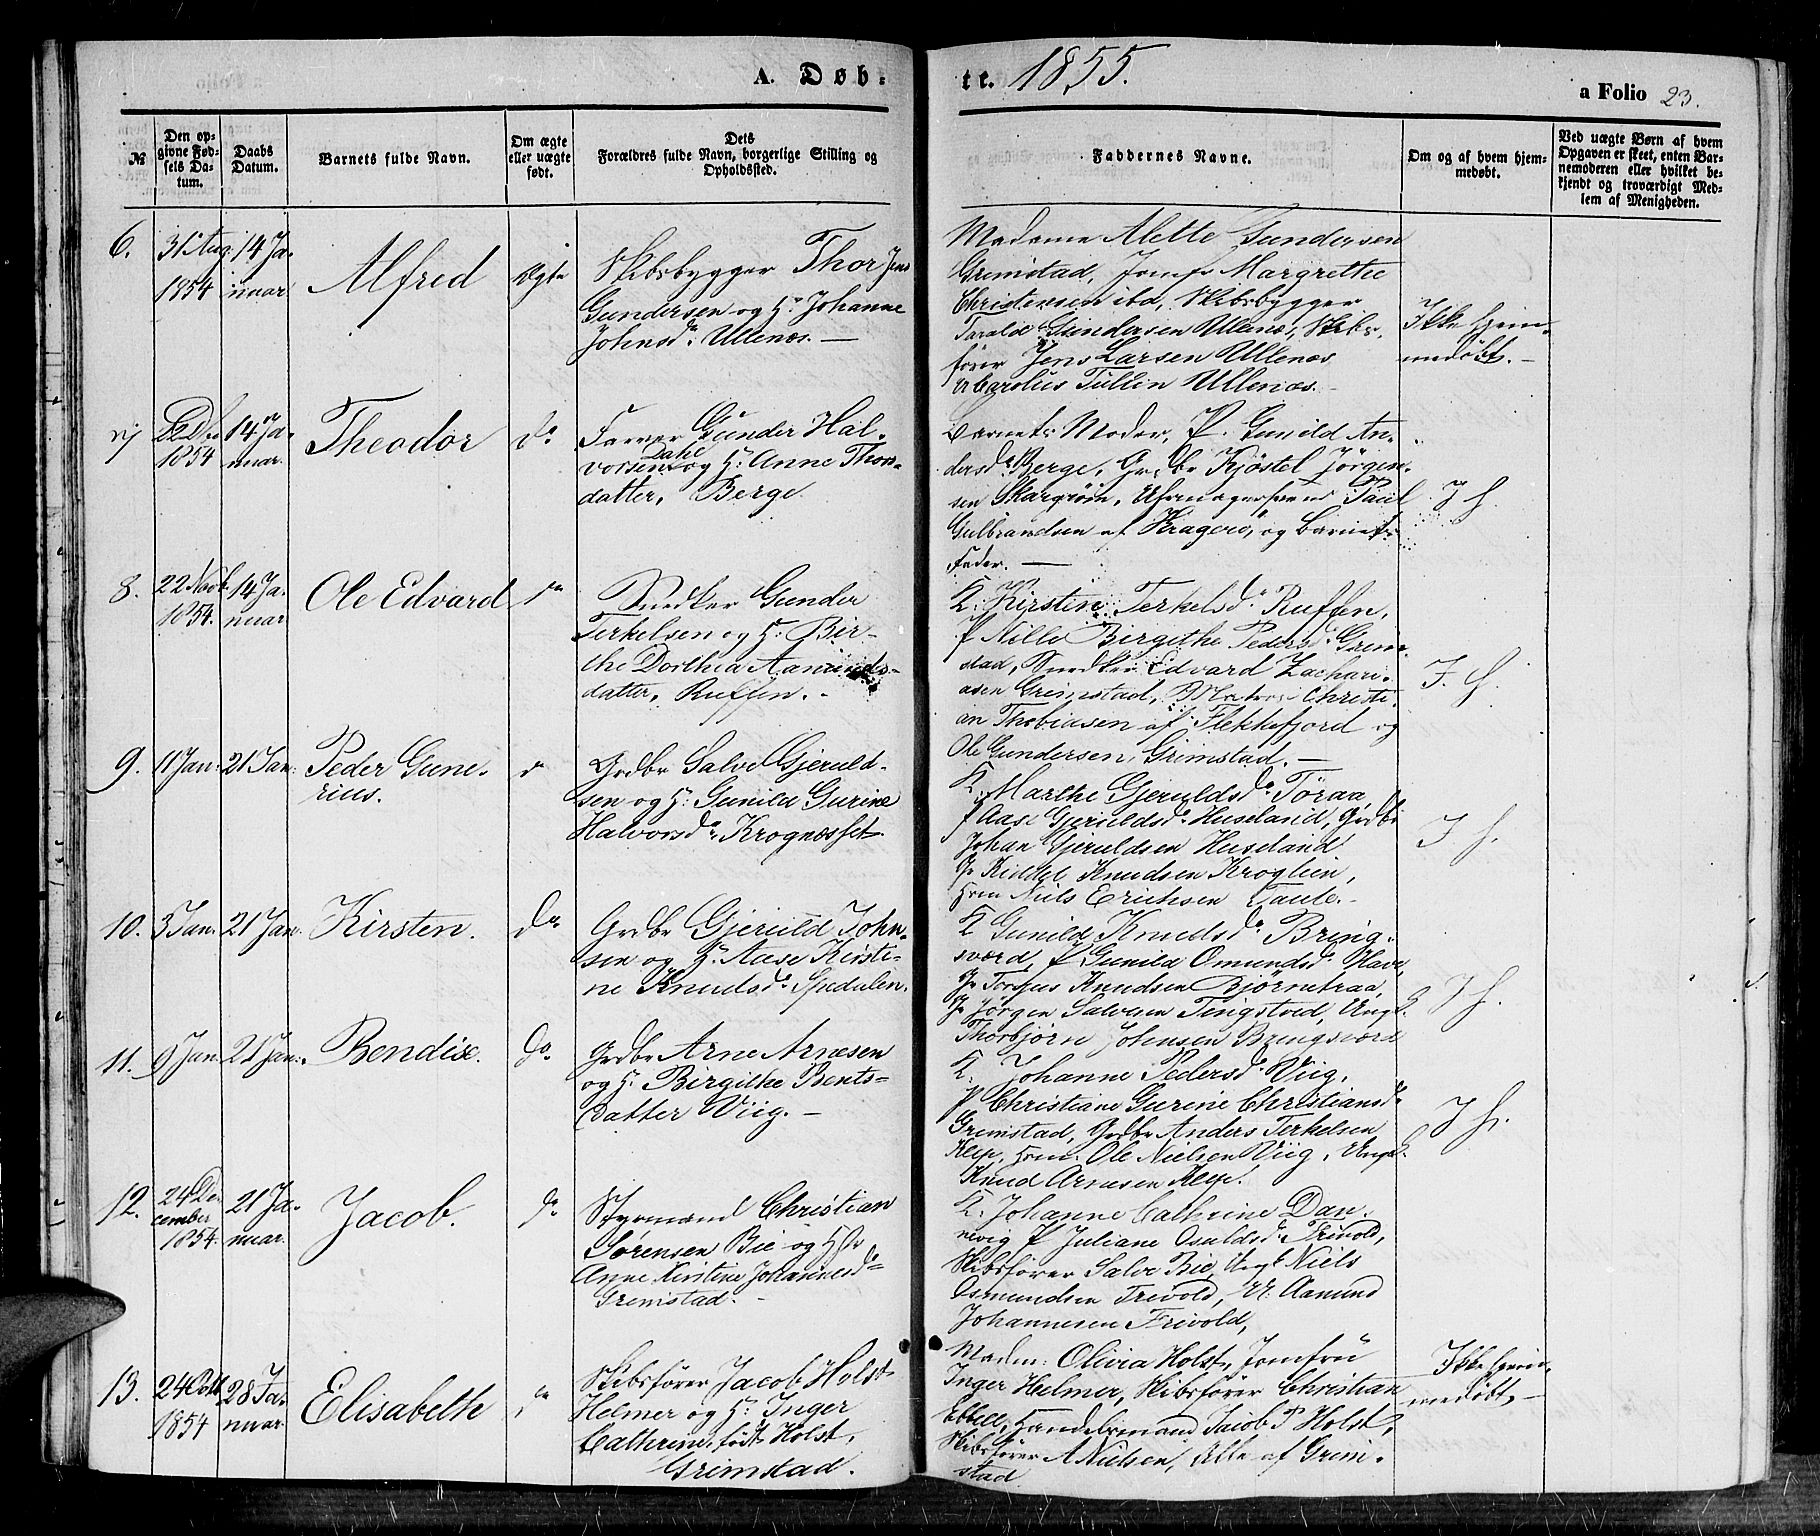 A. Døb-
te. 1855.
a Folio 23.
№
Den op-
givne Fød-
sels Da-
tum.
Daabs
Datum.
Barnets fulde Navn.
Om ægte
eller uægte
født.
Dets
Forældres fulde Navn, borgerlige Stilling og
Opholdssted.
Faddernes Navne.
Om og af hvem hjem-
medøbt.
Ved uægte Børn af hvem
Opgaven er skeet, enten Bar-
nemoderen eller hvilket be-
kjendt og troværdigt Med-
lem af Menigheden.
6.
31 Aug.
1854
14 Ja-
nuar
Alfred
Ægte
Skibsbygger Thor Jens
Gundersen og H: Johanne
Johnsd: Ullenæs. —
Madame Alette Gundersen
Grimstad, Jomfr Margrethe
Christensen ibd, Skibsbygger
Taralde Gundersen Ullenæs, Skibs-
fører Jens Larsen Ullenæs
Carolus Tullin Ullenæs.
Ikke hjem-
medøbt. —
7
1854
14 Ja-
nuar.
Theodor
do
Farver Gunder Hal-
vorsen Dahl og H: Anne Thors-
datter, Berge.
Barnets Moder, P. Gunild An-
dersd: Berge, Grdbr Kjøstel Jörgen-
sen Skargrøin, Paul
Gulbrandsen af Kragerø, og Barnets
Fader. —
I h.
8.
22 Novb.
1854.
14 Ja-
nuar
Ole Edvard
do
Snedker Gunder
Terkelsen og H: Bir-
the Dorthea Aamunds-
datter, Ruffen. -
K: Kirsten Terkelsd: Ruffen,
P Nille Birgithe Pedersd: Grim-
stad, Snedker Edvard Zachari-
asen Grimstad, Christi-
an Thobiasen af Flekkefjord og
Ole Gundersen, Grimstad. —
I. h.
9.
11 Jan:
21 Jan:
Peder Gune-
rius.
d
Grdbr Salve Gjeruld-
sen og H: Gunild Gurine
Halvorsd: Krognæsset.
K. Marthe Gjeruldsd: Töraa
P Aase Gjeruldsd: Huseland, Grdbr
Johan Gjeruldsen Huseland
Gr Kiddel Knudsen Kroglein,
Hsm Niels Erichsen Taule.-
I h.
10.
3 Jan.
21 Jan.
Kirsten.
do
Grdbr Gjeruld John-
sen og H: Aase Kirsti-
ne Knudsd: Spedalen.
K Gunild Knudsd: Bring-
sværd, P Gunild Omundsd: Have,
Gr Torjus Knudsen Bjørnetraa,
Gr Jörgen Salvesen Tingstved, Ungk.
Thorbjörn Johnsen Bringsværd
I h.
11.
9 Jan.
21 Jan:
Bendise.
do.
Grdbr Arne Arnesen
og H: Birgithe Bents-
datter Viig. —
K. Johanne Pedersd: Viig,
P Christiane Gurine Christiansd:
Grimstad, Grdbr Anders Terkelsen
Reje, Hsm: Ole Nielsen Viig, Ungk.
Knud Arnesen Reje.
I h.
12.
24 De-
cember
1854.
21 Ja-
nuar.
Jacob.
do
Styrmand Christian
Sørensen Bie og Hstr
Anne Kirstine Johannesd:
Grimstad. -
K: Johanne Cathrine Dan-
nevig P Juliane Osuldsd: Frivold,
Skibsfører Salve Bie, Ungk Niels
Osmundsen Frivold, U: Aamund
Johannesen Frivold,
13.
24 Octb
1854
28 Ja-
nuar.
Elisabeth
do
Skibsfører Jacob Holst
Helmer og H: Inger
Cathrine, født Holst,
Grimstad.
Madm: Olivia Holst, Jomfru
Inger Helmer, Skibsfører Christian
Ebbell, Handelsmand Jacob P Holst,
Skibsfører A Nielsen, Alle af Grim-
stad
Ikke hjem-
medøbt, -